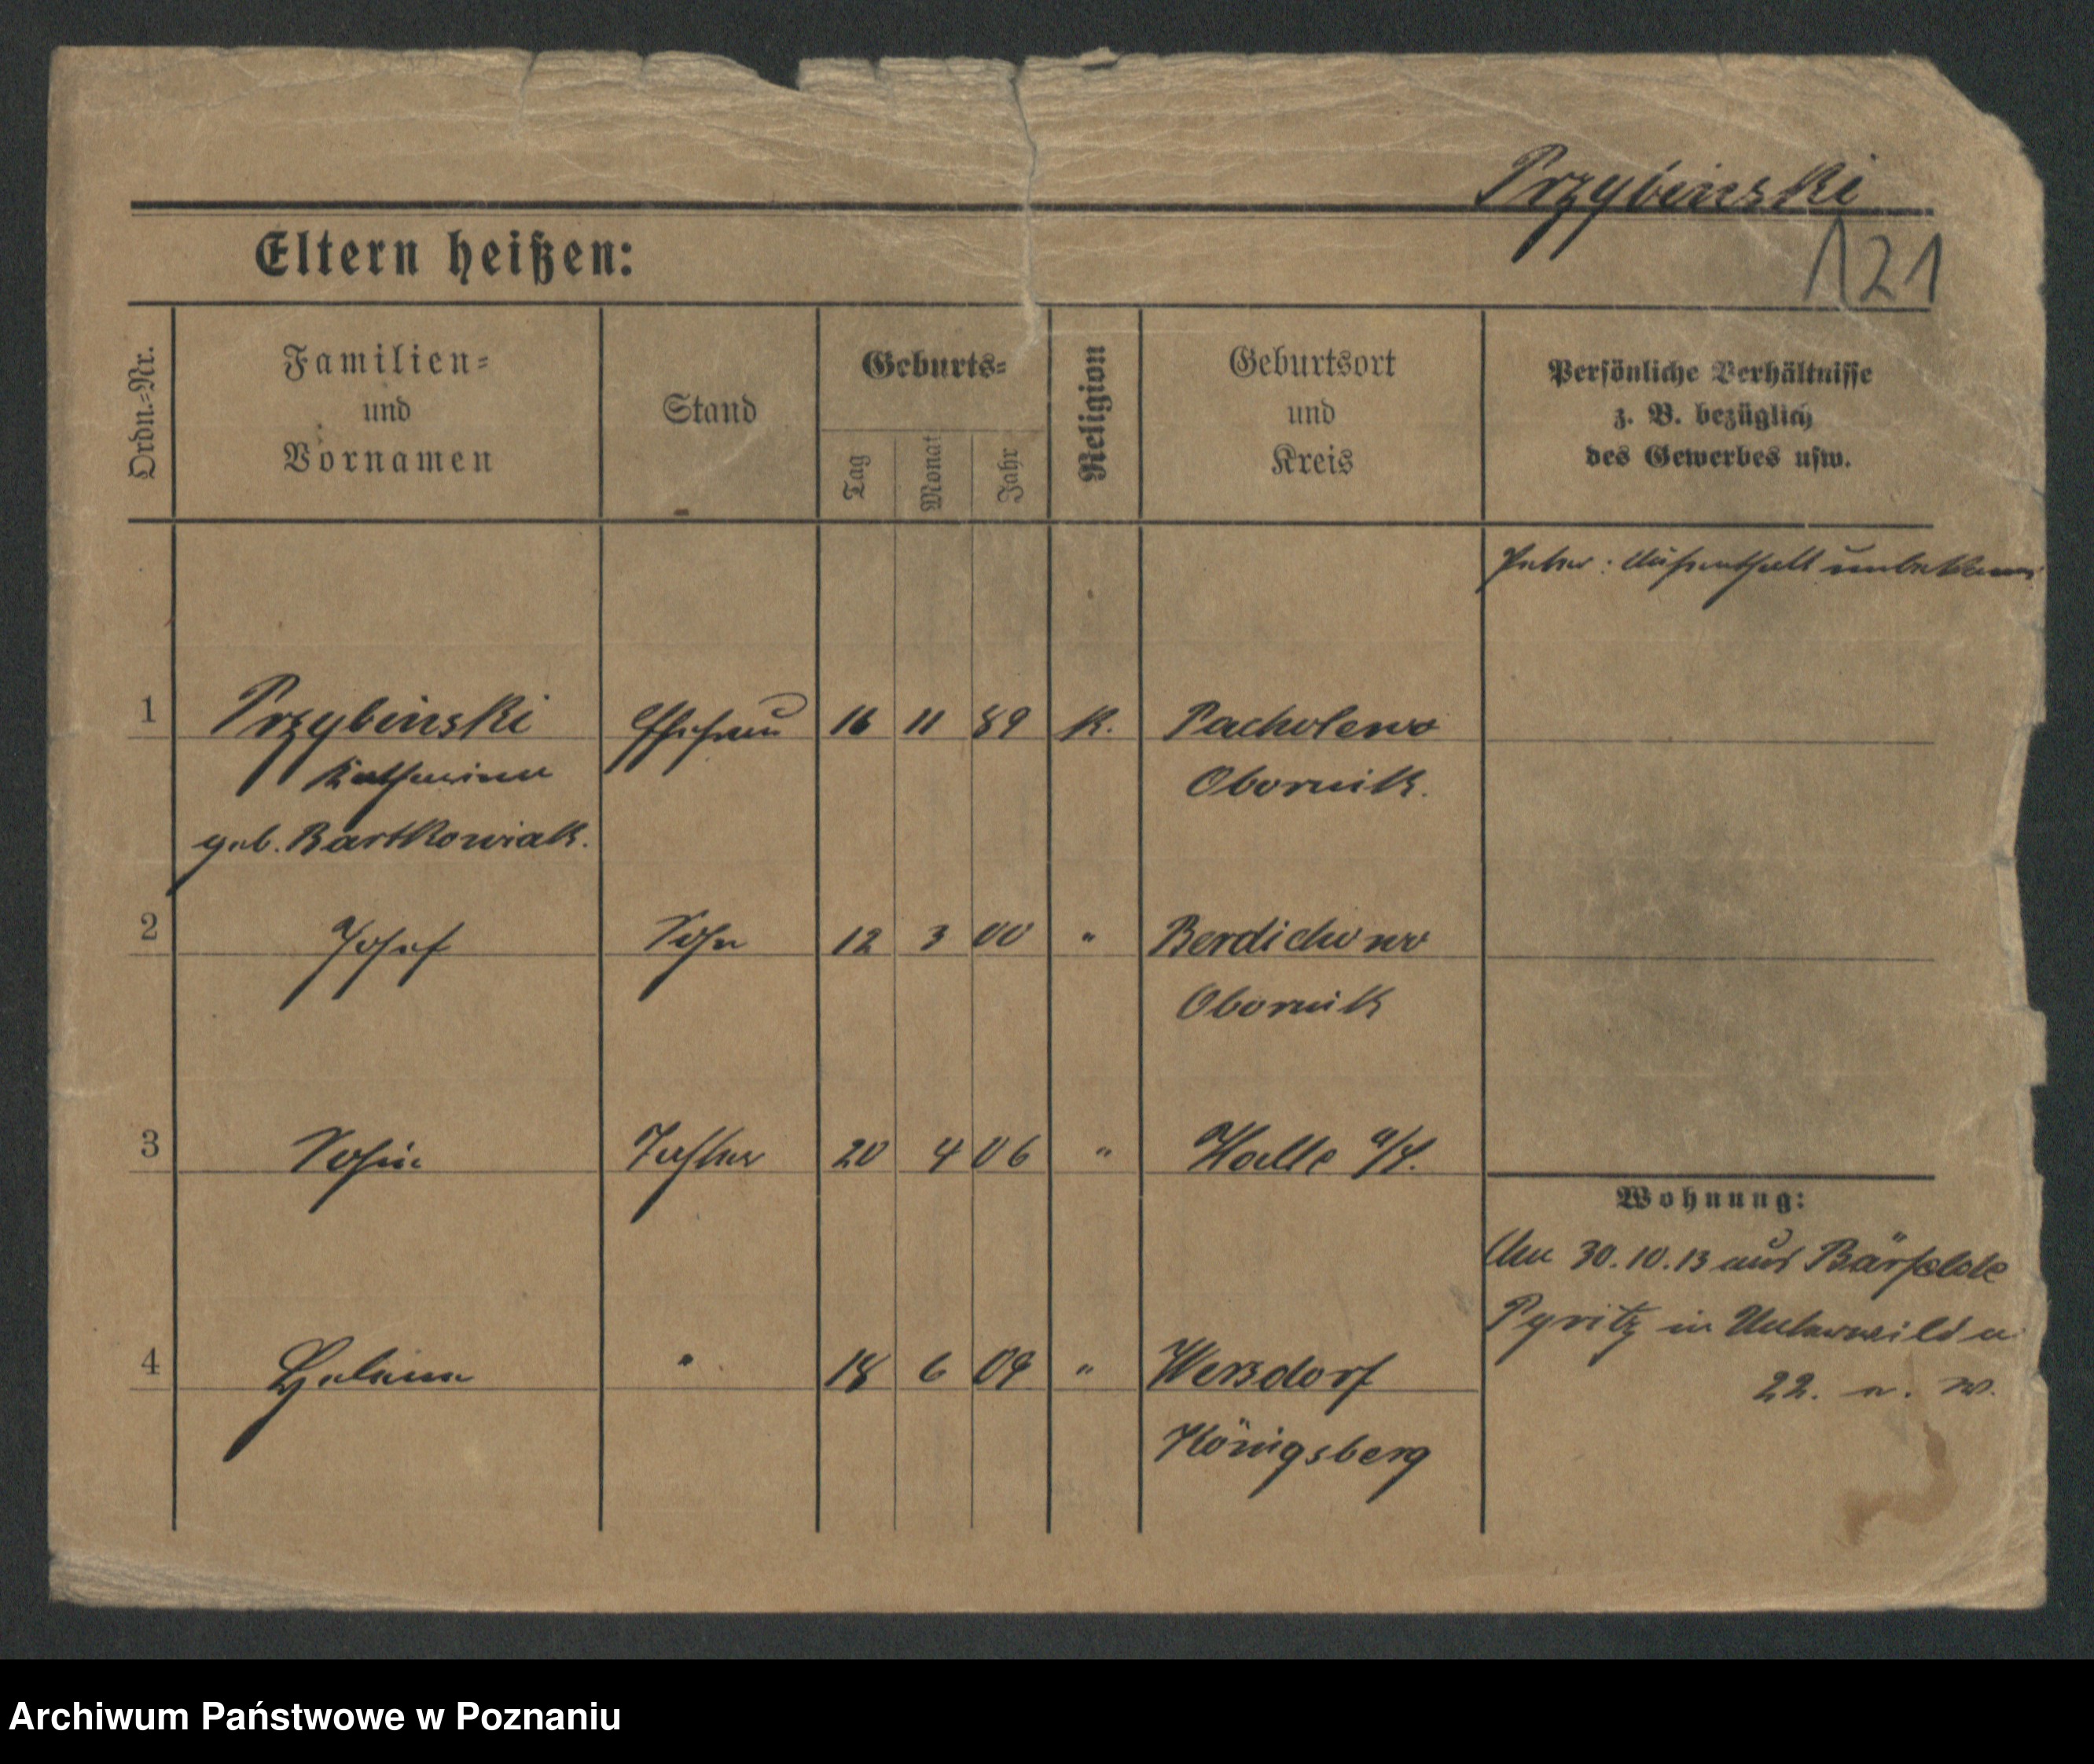 Przybinski
121
Eltern heißen:
Ordn.-Nr.
Familien-
und
Vornamen
Stand
Geburts-
Tag
Monat
Jahr
Religion
Geburtsort
und
Kreis
Persönliche Verhältnisse
z. B. bezüglich
des Gewerbes usw.
Aufenthalt unbekannt
1 Przybinski Ehefrau 16 11 89 K. Pacholewo
Katharina Obornik.
geb. Bartkowiak.
2 Josef Sohn 12 3 00 " Berdichowo
Obornik
3 Sofie Tochter 20 4 06 " Halle a/S.
Wohnung:
Am 30.10.13 aus Bärfelde
Pyritz in Unterwilda
22. n. w.
4 Helena " 18 6 09 " Wersdorf
Königsberg
Archiwum Państwowe w Poznaniu